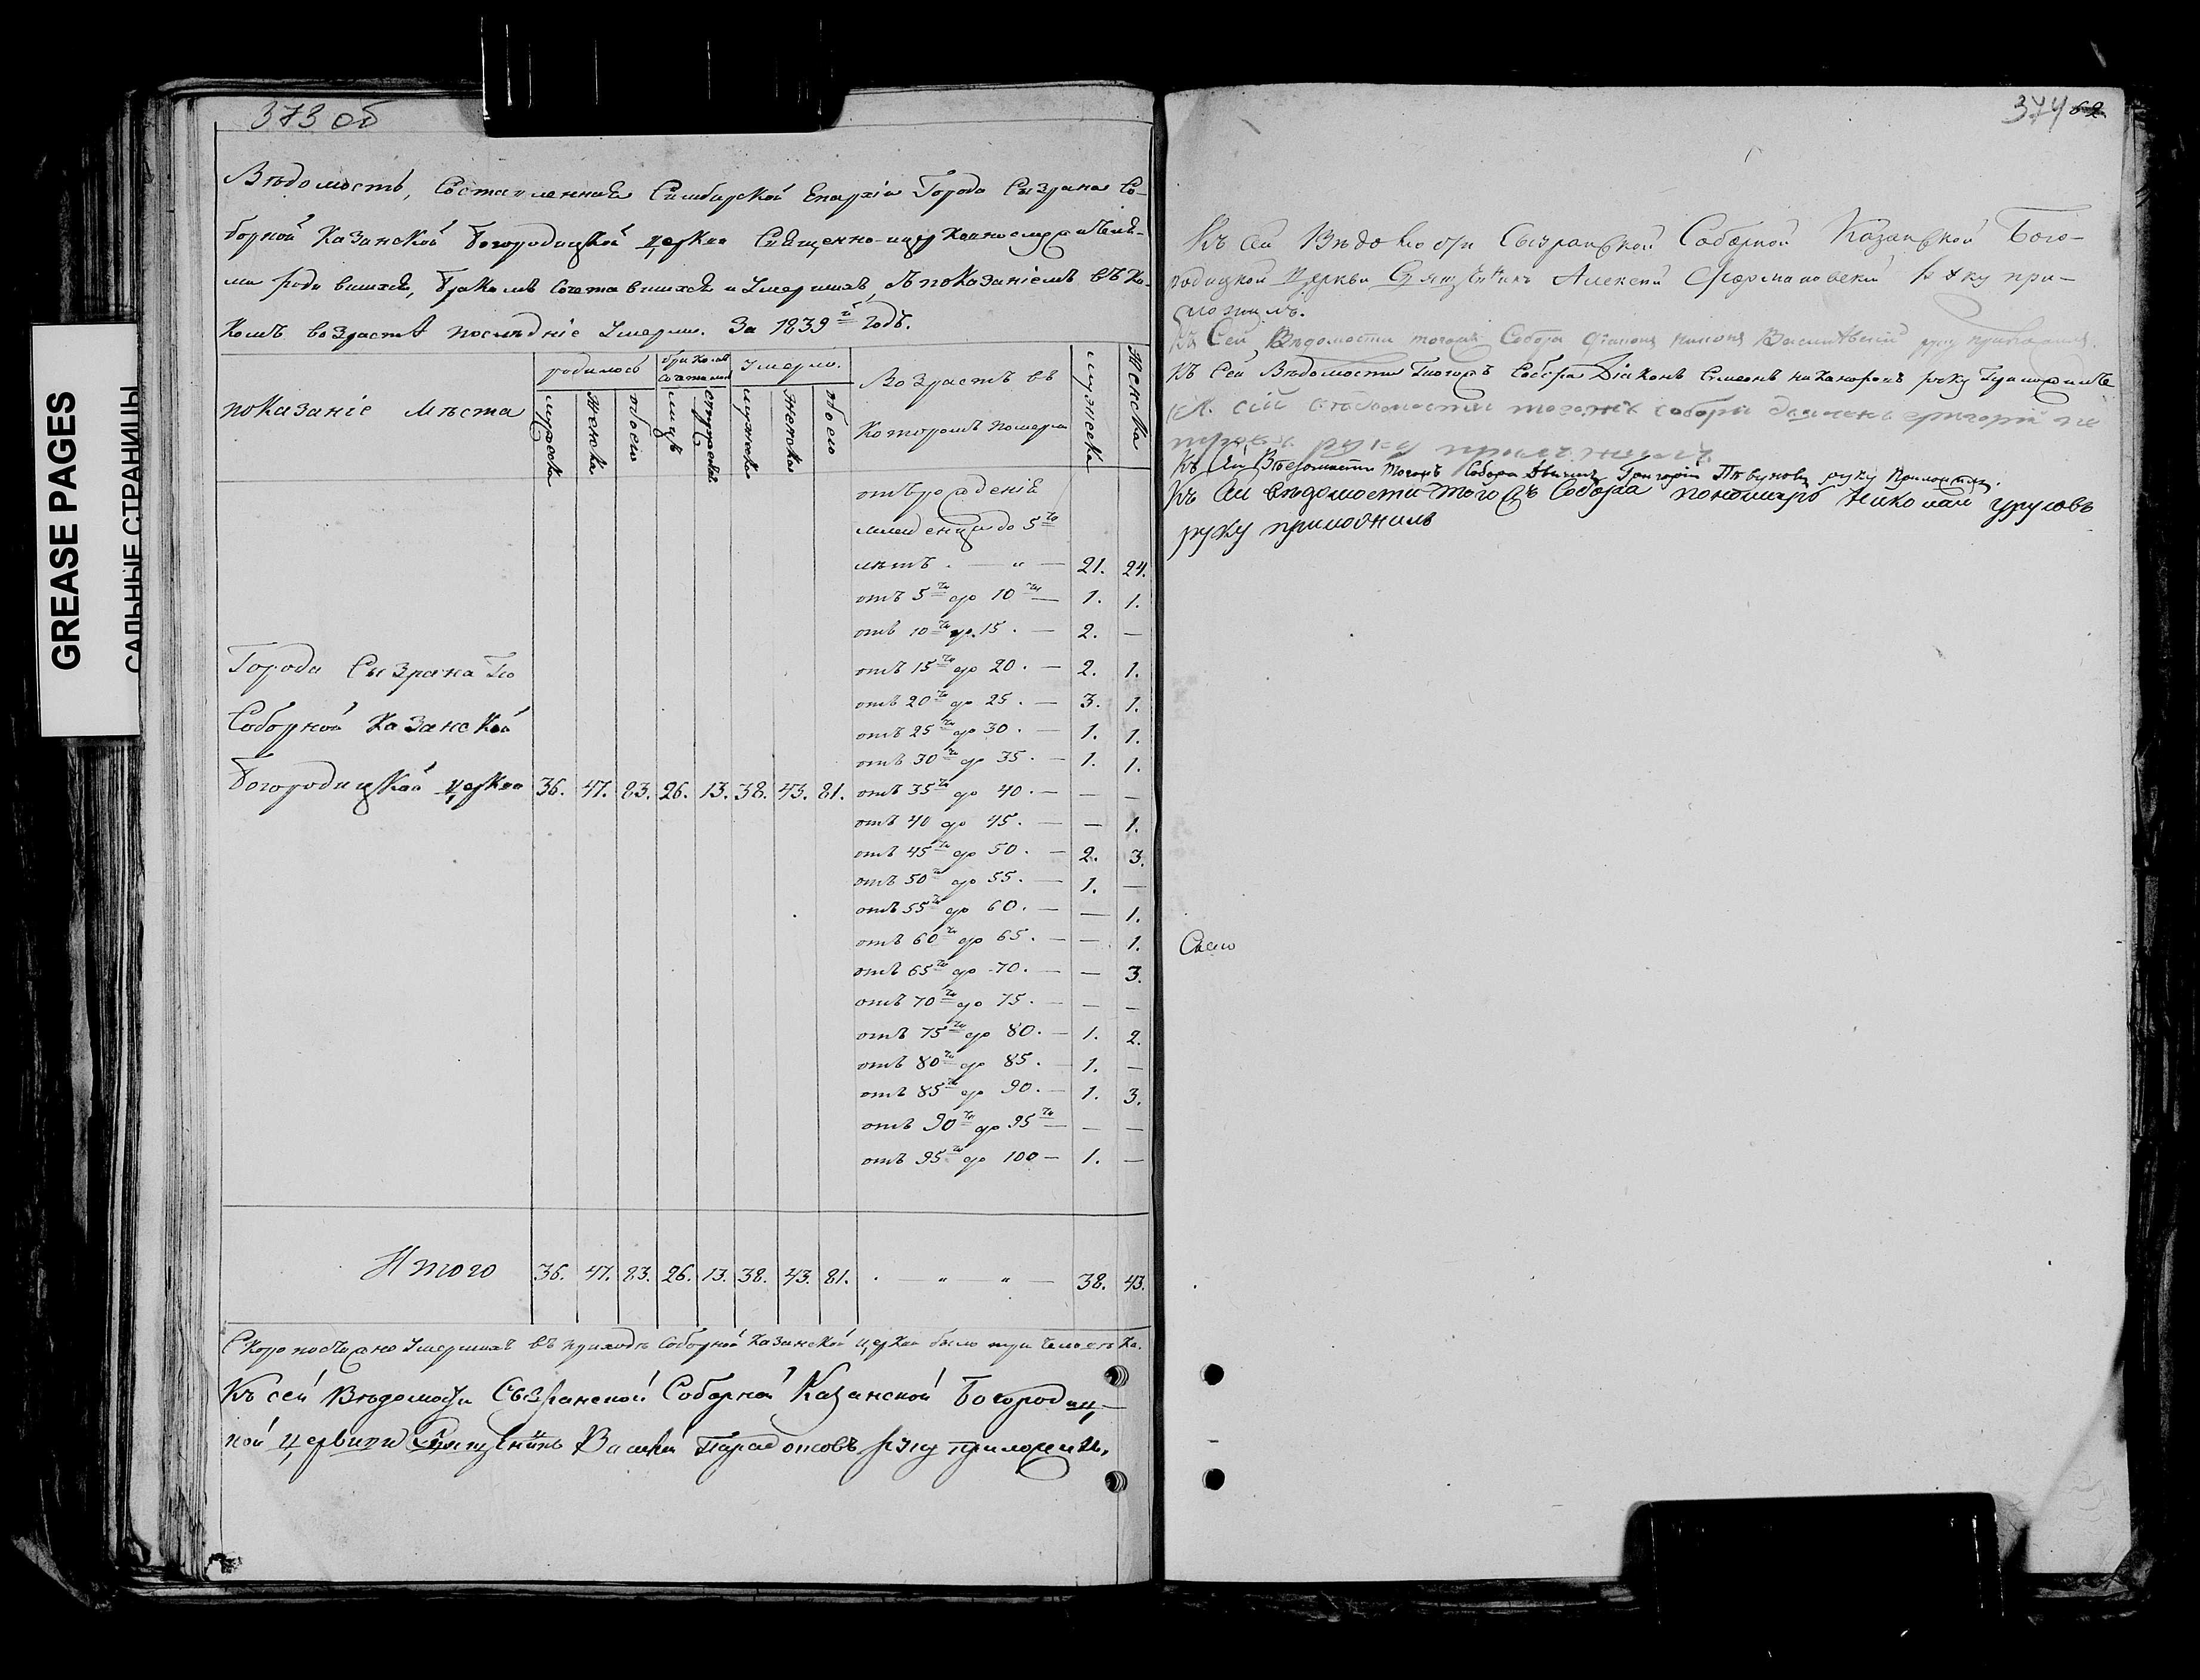 GREASE PAGES
САЛЬНЫЕ СТРАНИЦЫ
373 об
Вѣдомость, Составленная Симбирской Епархіи Города Сызрана Со-
борной Казанской Богородицкой церкви Священно-церковнослужителя-
ми родившихся, бракомъ сочетавшихся и Умершихъ, съ показаніемъ въ ка-
комъ возрастѣ послѣдніе Умерли. За 1839й Годъ.
показаніе мѣста
родилось
мужеска
женска
обоего
бракомъ сочеталось
лицъ
супружествъ
Умерло.
мужеска
женска
обоего
Возрастъ въ
которомъ померли
мужеска
Женска
отъ рожденія
младенцы до 5ти
лѣтъ . — " — 21. 24.
отъ 5ти до 10ти — 1. 1.
отъ 10ти до 15. — 2. —
отъ 15ти до 20. — 2. 1.
отъ 20ти до 25. — 3. 1.
отъ 25ти до 30. — 1. 1.
отъ 30ти до 35. — 1. 1.
Города Сызрана по
Соборной Казанской
Богородицкой церкви 36. 47. 83. 26. 13. 38. 43. 81. отъ 35ти до 40. — — —
отъ 40 до 45. — — 1.
отъ 45ти до 50. — 2. 3.
отъ 50ти до 55. — 1. —
отъ 55ти до 60. — — 1.
отъ 60ти до 65. — — 1.
отъ 65ти до 70. — — 3.
отъ 70ти до 75. — — —
отъ 75ти до 80. — 1. 2.
отъ 80ти до 85. — 1. —
отъ 85ти до 90. — 1. 3.
отъ 90ти до 95ти — — —
отъ 95ти до 100 — 1. —
Итого 36. 47. 83. 26. 13. 38. 43. 81. . — " — " — 38. 43.
Скоропостижно Умершихъ въ приходѣ Соборной Казанской церкви было три человѣка.
Къ сей Вѣдомости Сызранской Соборной Казанской Богородиц-
кой церкви Священникъ Василій Парадоксовъ руку приложилъ.
374 62
Къ сей Вѣдомости Сызранской Соборной Казанской Бого-
родицкой Церкви Священникъ Алексей руку при-
ложилъ.
Къ Сей Вѣдомости тогожъ Собора Діаконъ руку приложилъ.
Къ Сей Вѣдомости тогожъ Собора Діаконъ Симеонъ руку приложилъ
Къ сій вѣдомости тогожъ собора дьячекъ григорій
руку приложилъ
Къ сей Вѣдомости тогожъ Собора Григорій Певуновъ руку приложилъ.
Къ сей вѣдомости тогожъ Собора пономарь Николай Урусовъ
руку приложилъ